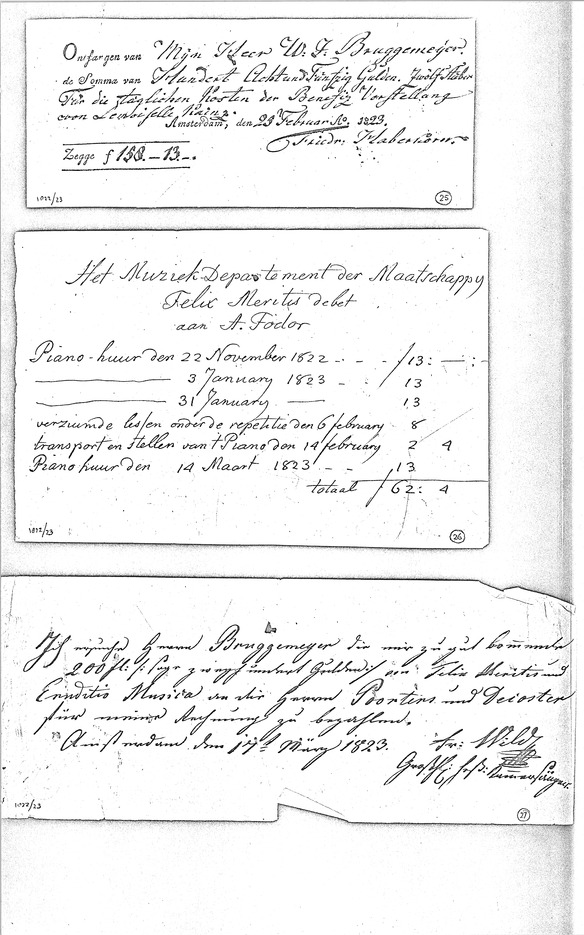 Ontfangen van Mijn Heer W. F. Bruggemeijer.
de Somma van Hundert Acht und Fünfzig Gulden. Zwölf Stüber
Für die täglichen Kosten der Benefiz Vorstellung
vorn Kainz.
Amsterdam, den 29 Februar Ao. 1823.
Zegge f 158.-13.-. Friedr: Haberkorn.
1022/23 25
Het Muziek Departement der Maatschappy
Felix Meritis debet
aan A. Fodor
Piano-huur den 22 November 1822 - - - f 13: — : -
——— 3 January 1823 - - 13
——— 31 January — 13
verzuimde lessen onder de repetitie den 6 february 8
transport en stellen van t Piano den 14 february 2 4
Piano huur den 14 Maart 1823 - - 13
totaal f 62: 4
1022/23 26
Ich ersuche Herrn Bruggemeyer die mir zu gut kommende
200 fl: s: sage zweyhundert Gulden von Felix Meritis und
Eruditio Musica an die Herren Poortens und Decoster
für meine Rechnung zu bezahlen.
Amsterdam den 17t März 1823. Fr: Wild
Großh: heß: Kammersänger.
1022/23 27